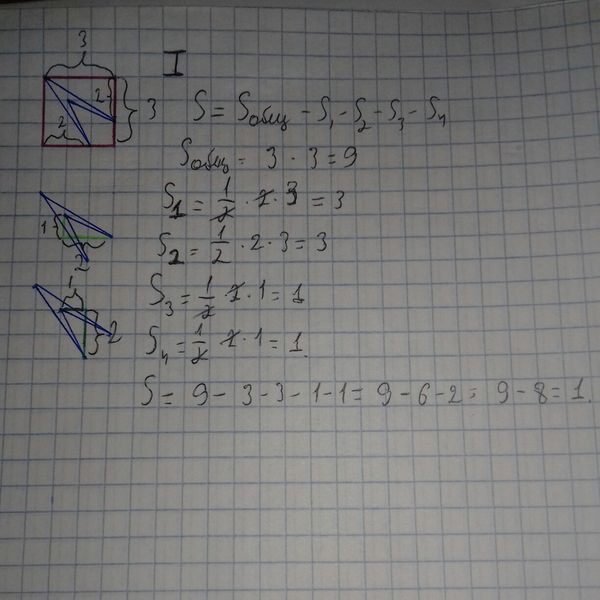 3
I
2
3
2
S = Sобщ - S₁ - S₂ - S₃ - S₄
Sобщ = 3 · 3 = 9
S₁ = 1/2 · 2 · 3 = 3
1
2
S₂ = 1/2 · 2 · 3 = 3
1
2
S₃ = 1/2 · 2 · 1 = 1
S₄ = 1/2 · 2 · 1 = 1.
S = 9 - 3 - 3 - 1 - 1 = 9 - 6 - 2 = 9 - 8 = 1.